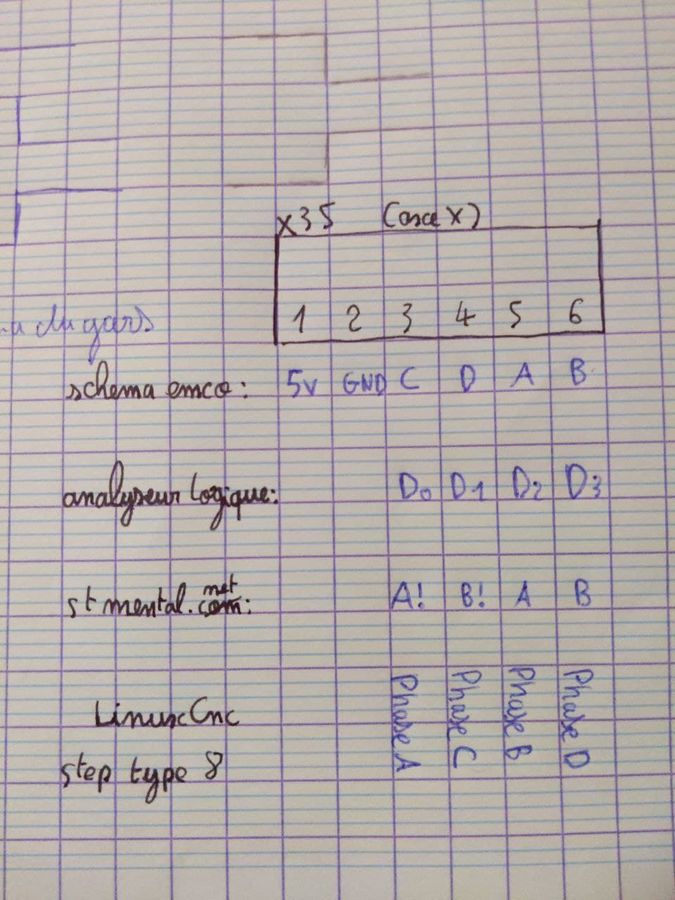 x35 (axe X)
1 2 3 4 5 6
du gars
schema emco: 5v GND C D A B
analyseur logique: D0 D1 D2 D3
net
st mental.com: A! B! A B
LinuxCnc Phase A Phase C Phase B Phase D
step type 8